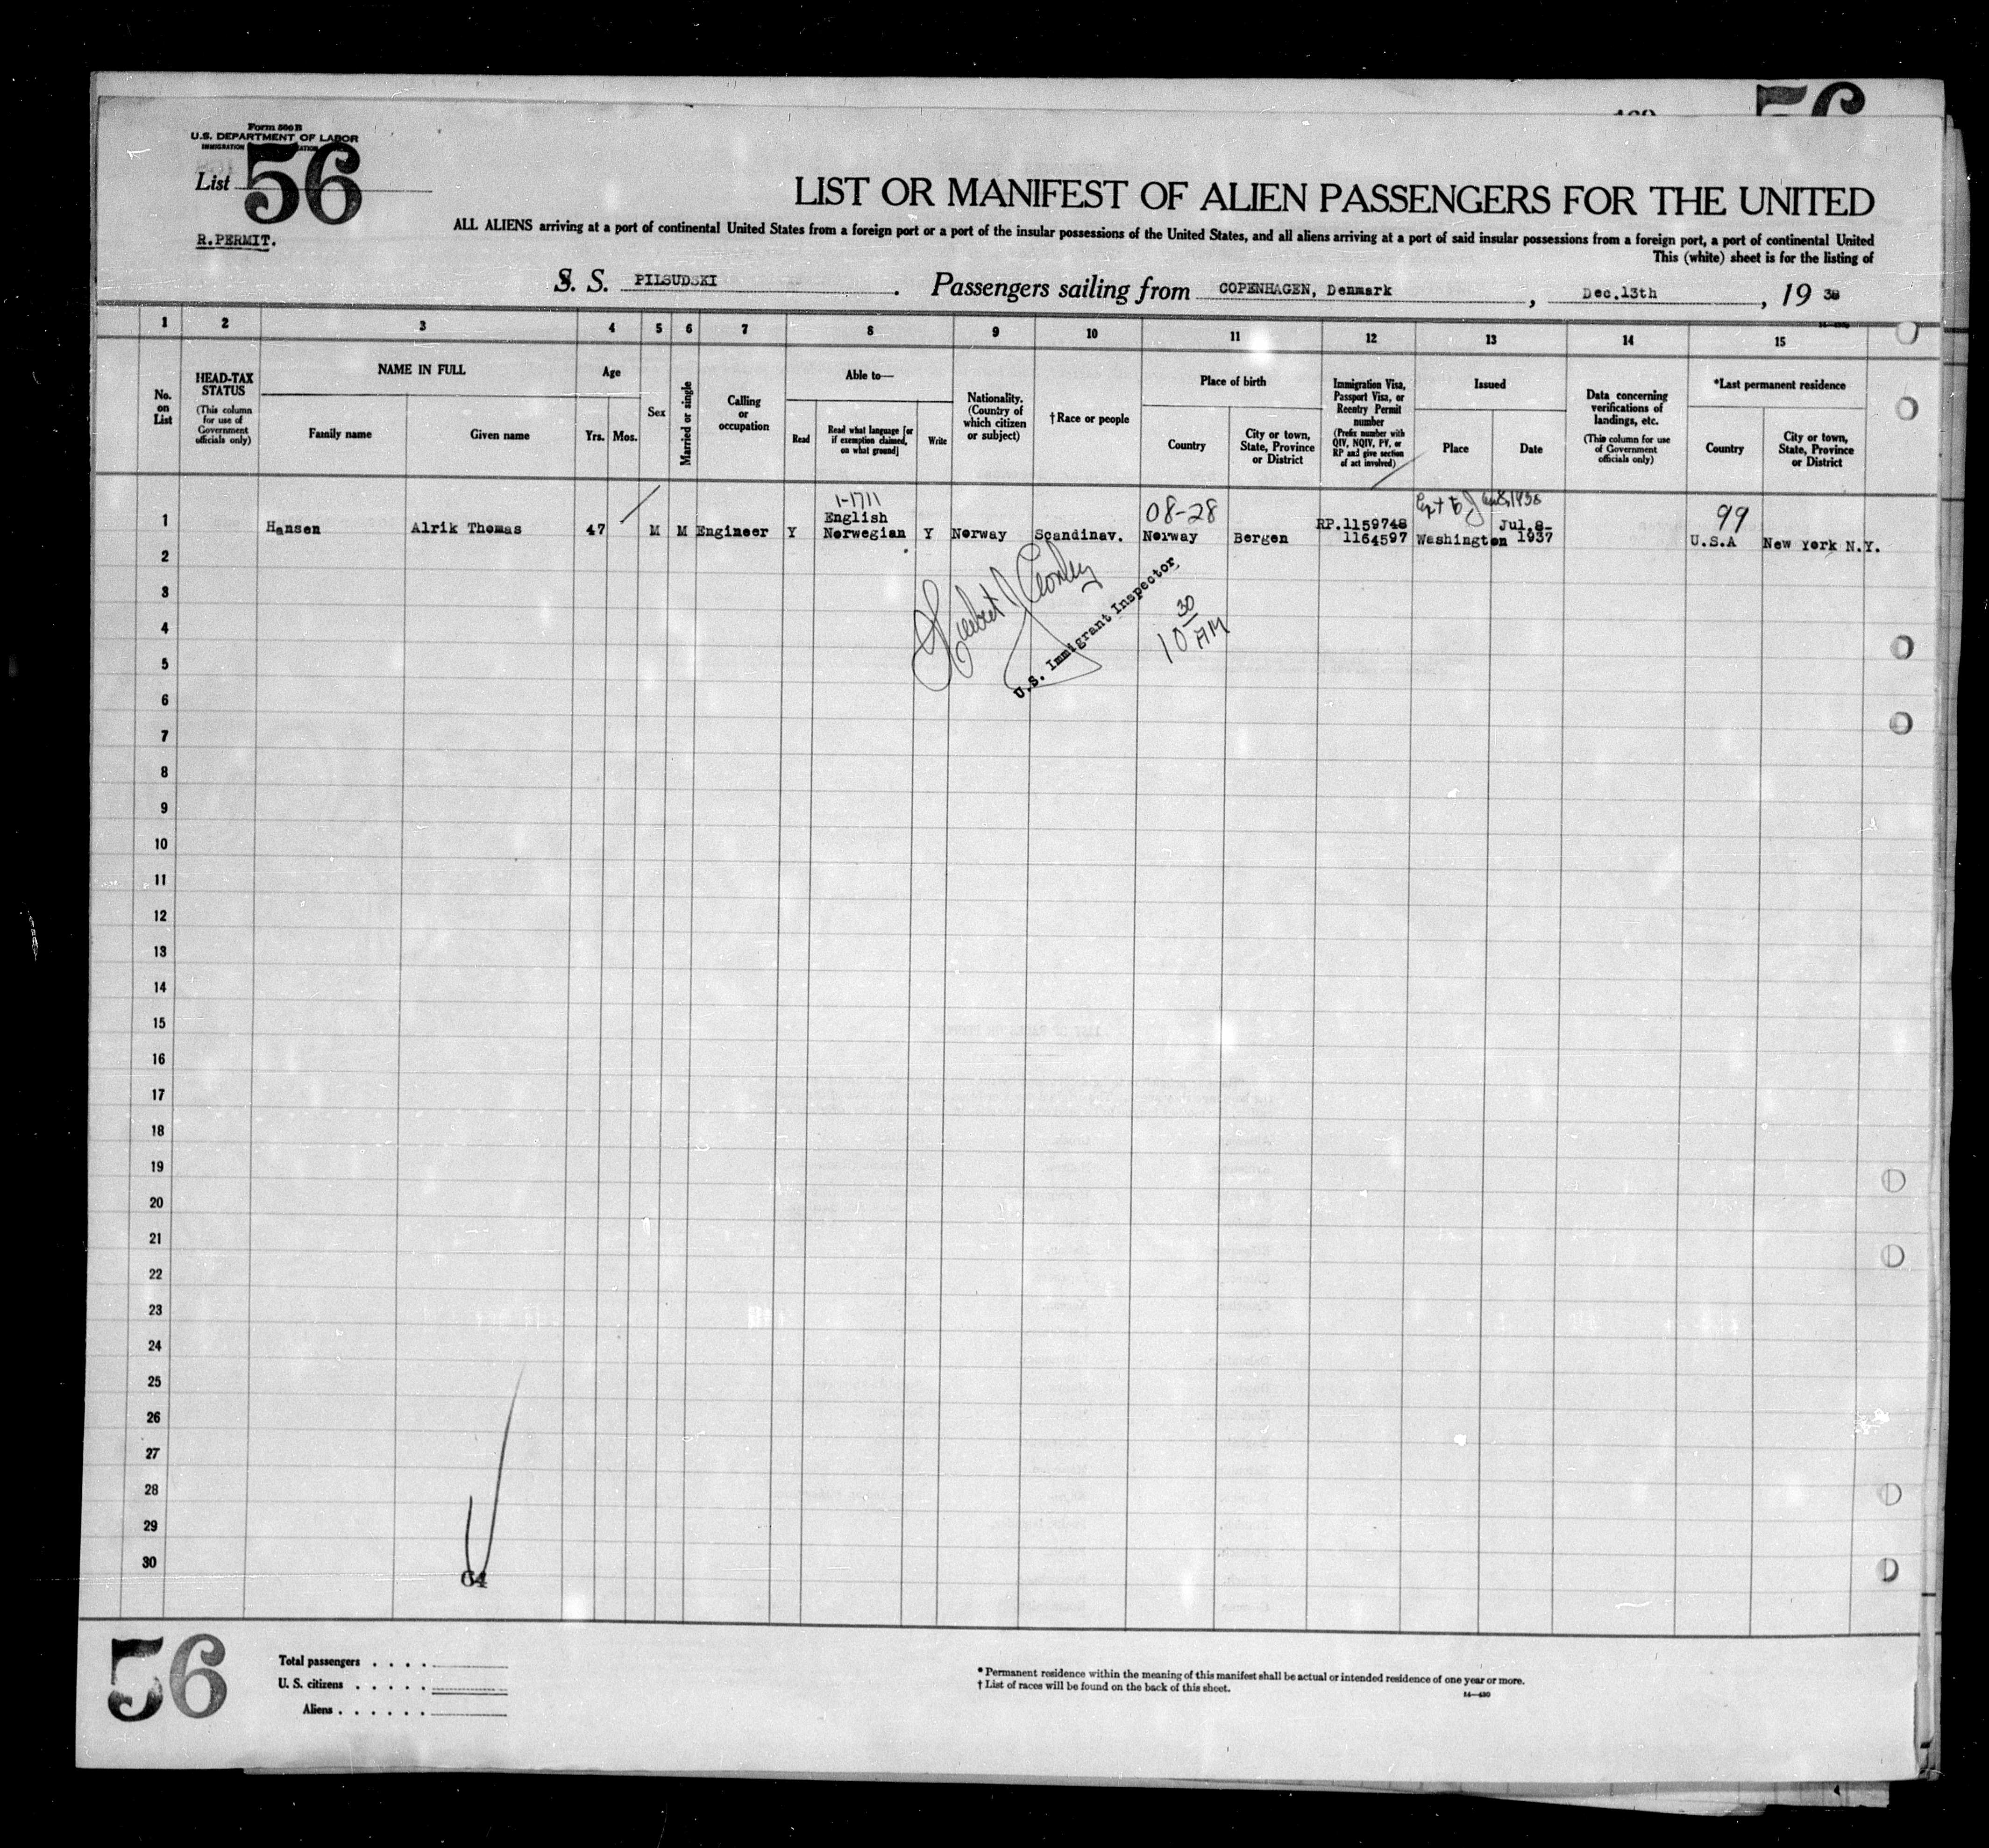 56
Form 500 B
U.S. DEPARTMENT OF LABOR
IMMIGRATION
List 56
R.PERMIT.
LIST OR MANIFEST OF ALIEN PASSENGERS FOR THE UNITED
ALL ALIENS arriving at a port of continental United States from a foreign port or a port of the insular possessions of the United States, and all aliens arriving at a port of said insular possessions from a foreign port, a port of continental United
This (white) sheet is for the listing of
S. S. PILSUDSKI . Passengers sailing from COPENHAGEN, Denmark , Dec.13th , 19 38
1 2 3 4 5 6 7 8 9 10 11 12 13 14 15
No. on List
HEAD-TAX STATUS
(This column for use of Government officials only)
NAME IN FULL
Family name
Given name
Age
Yrs.
Mos.
Sex
Married or single
Calling or occupation
Able to—
Read
Read what language [or if exemption claimed, on what ground]
Write
Nationality. (Country of which citizen or subject)
†Race or people
Place of birth
Country
City or town, State, Province or District
Immigration Visa, Passport Visa, or Reentry Permit number
(Prefix number with QIV, NQIV, PV, or RP and give section of act involved)
Issued
Place
Date
Data concerning verifications of landings, etc.
(This column for use of Government officials only)
*Last permanent residence
Country
City or town, State, Province or District
1-1711
08-28
99
1 Hansen Alrik Thomas 47 M M Engineer Y English Norwegian Y Norway Scandinav. Norway Bergen RP.1159748 1164597 Washington Jul.8- 1937 U.S.A New York N.Y.
U.S. Immigrant Inspector
10 30 AM
2
3
4
5
6
7
8
9
10
11
12
13
14
15
16
17
18
19
20
21
22
23
24
25
26
27
28
29
30
64
56
Total passengers . . . .
U. S. citizens . . . . .
Aliens . . . . . .
* Permanent residence within the meaning of this manifest shall be actual or intended residence of one year or more.
† List of races will be found on the back of this sheet.
14—430